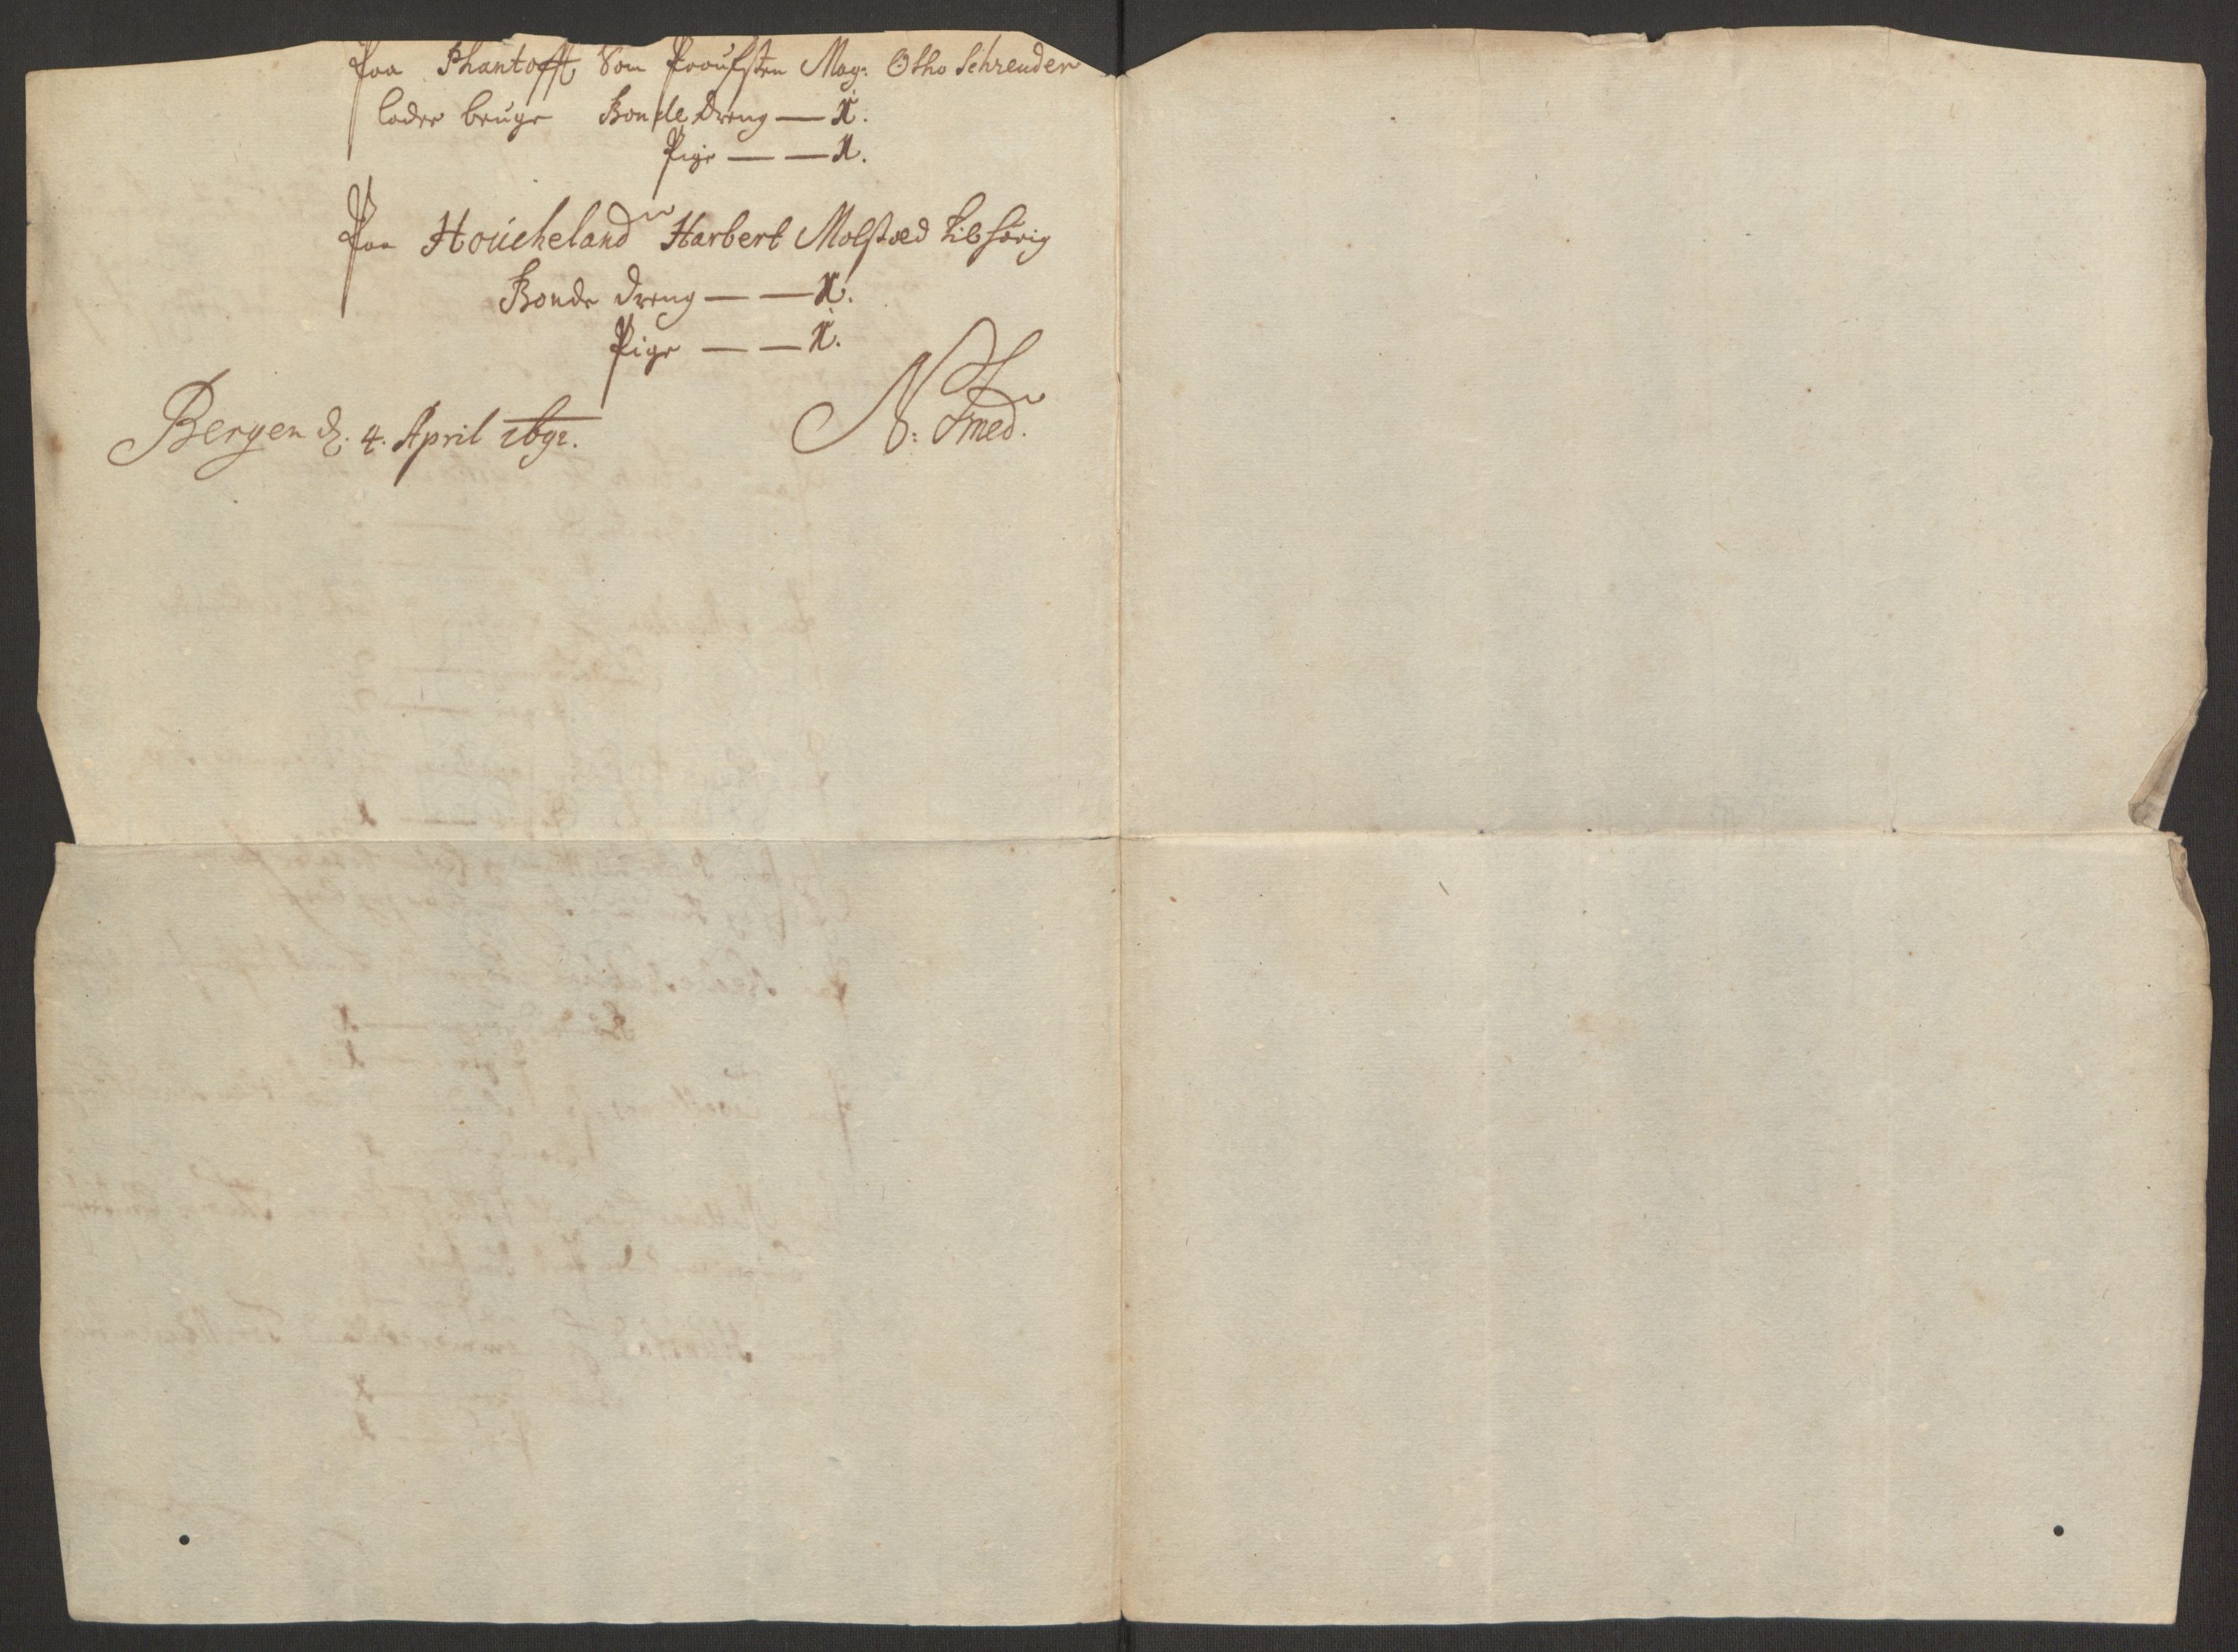 Paa Phantofft Som Proufsten Mag: Otho Schreuder
lader bruge Bonde dreng — 1.
Pige — — 1.
Paa Houcheland Harbert Molsted tilhörig
Bonde dreng — — 1.
Pige — — 1.
Bergen d. 4. April 1692.
N: Smed.